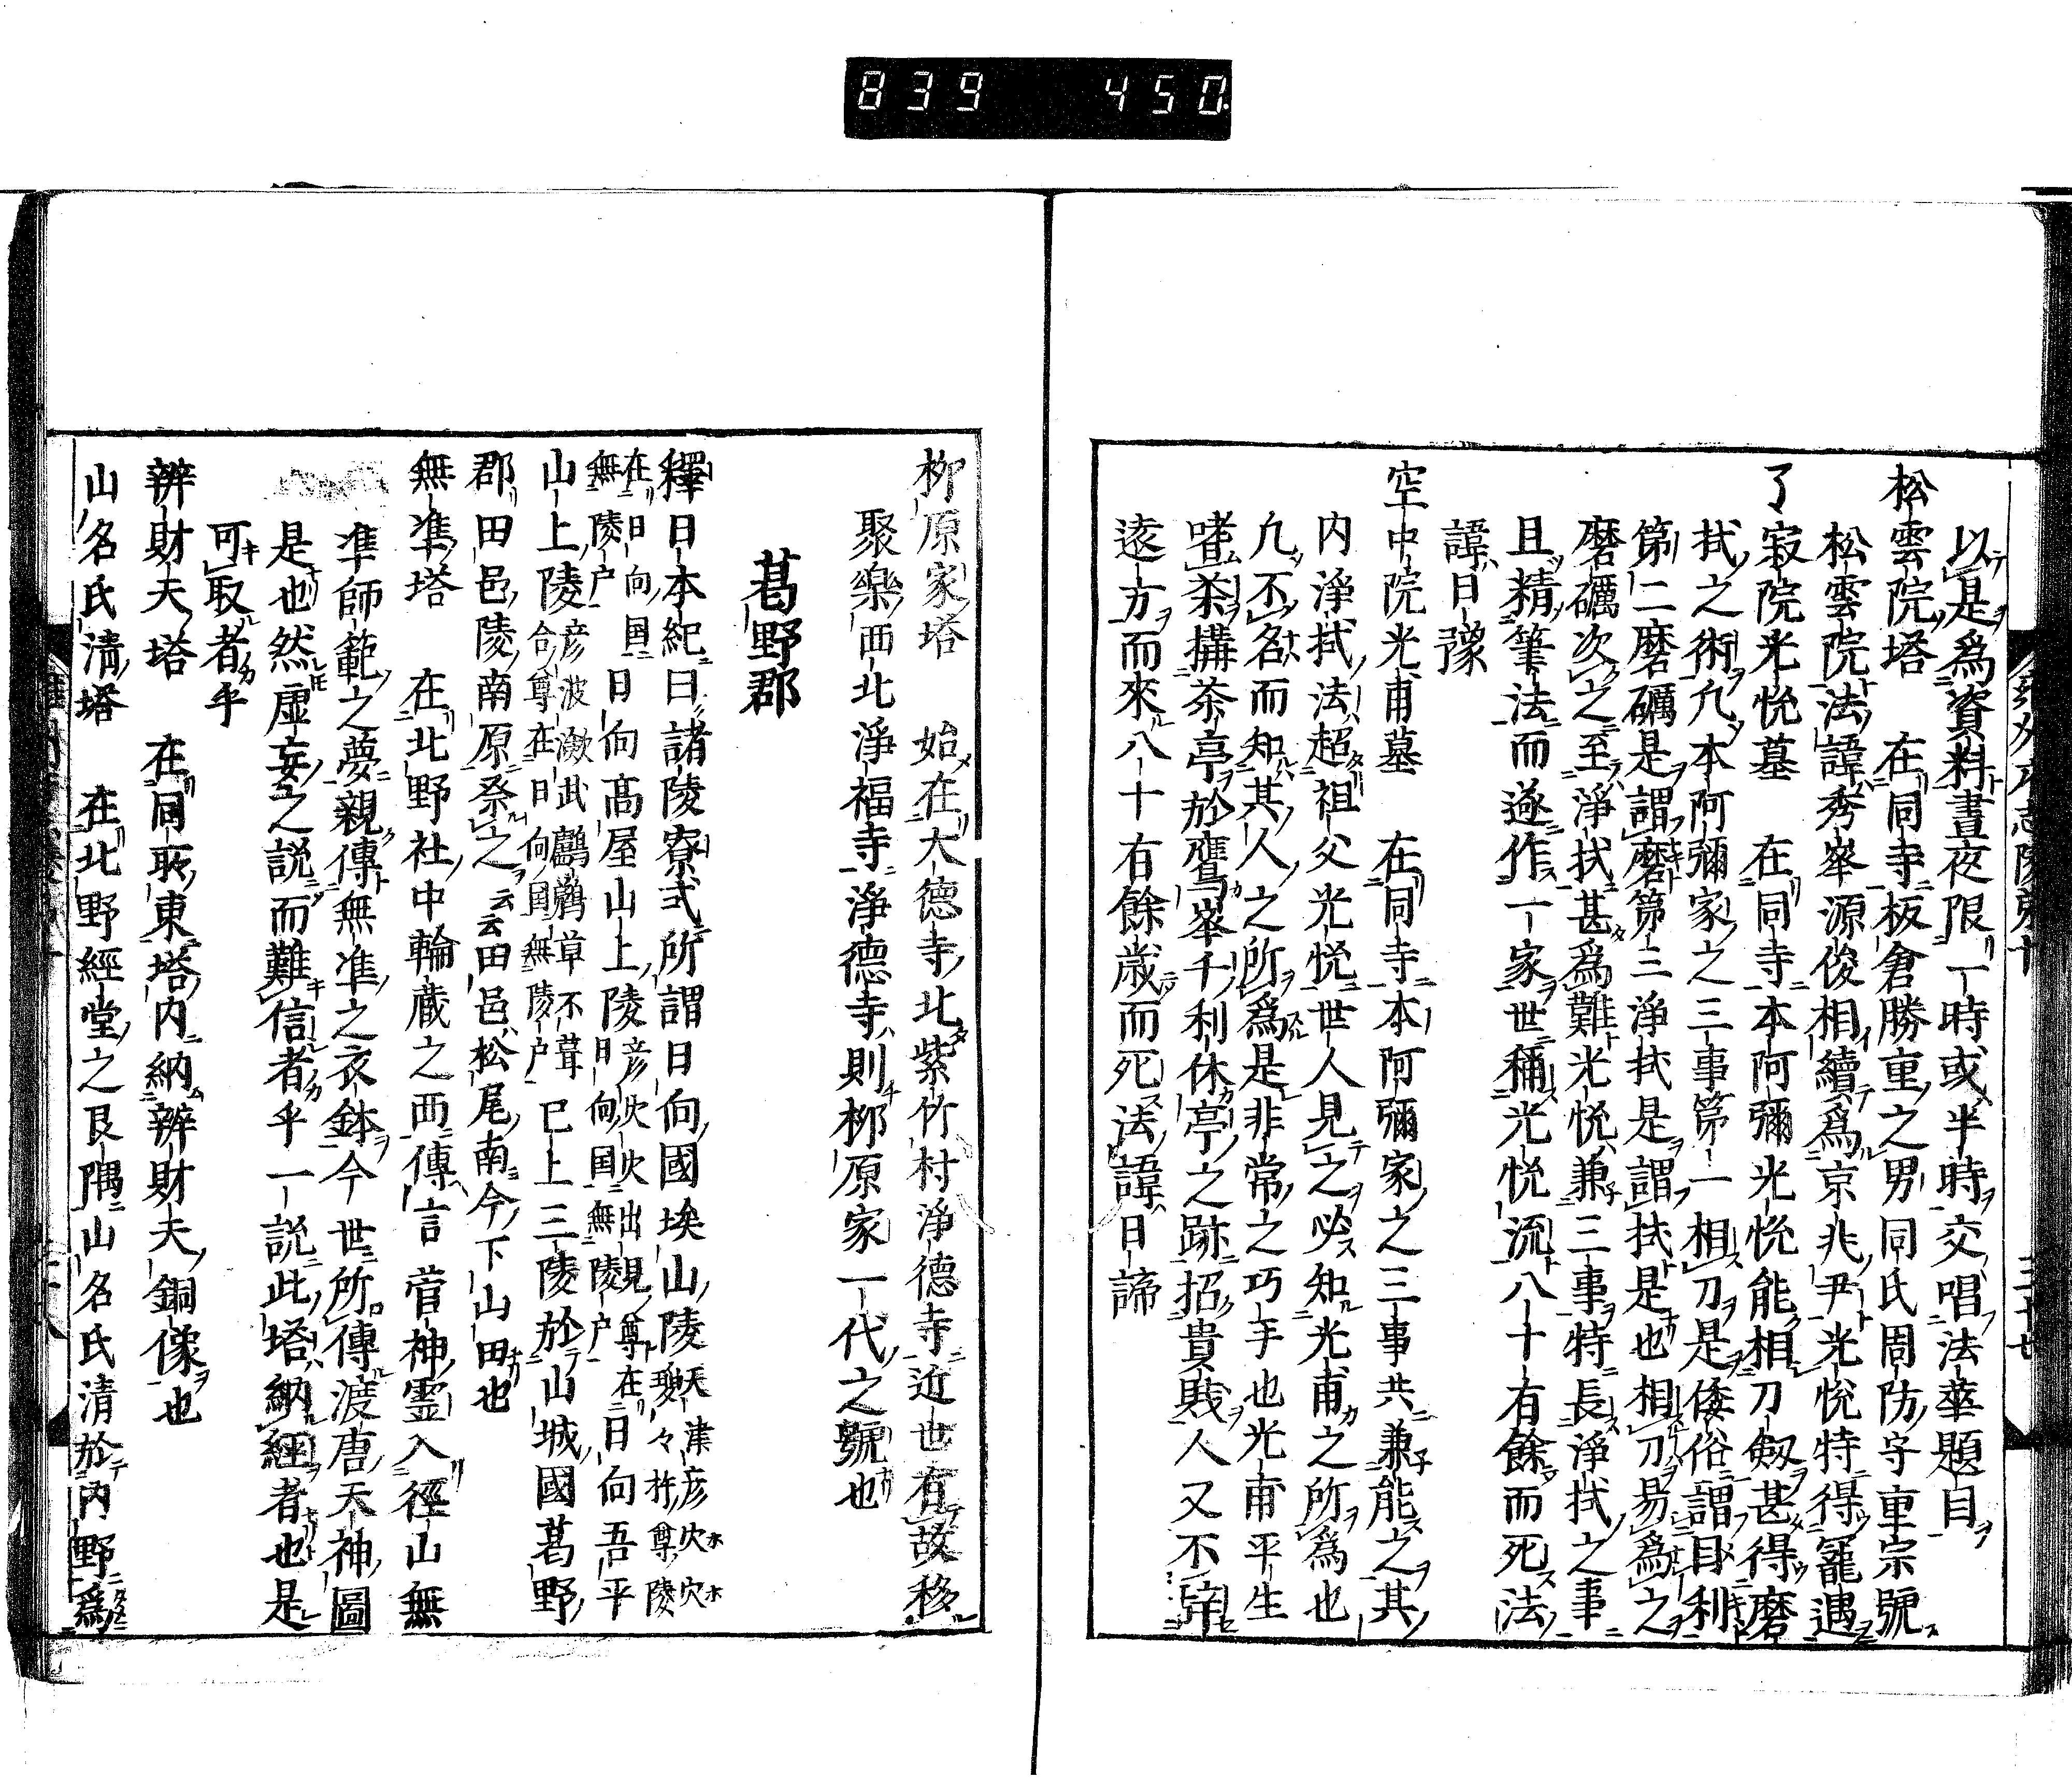 839 450
以是爲資料晝夜限一時或半時交唱法華題目
松雲院塔 在同寺板倉勝重之男同氏周防守重宗號
松雲院法諱秀峯源俊相續爲京兆尹光悅特得寵遇
了寂院光悅墓 在同寺本阿彌光悅能相刀劔甚得磨
拭之術凢本阿彌家之三事第一相刀是倭俗謂目利
第二磨礪是謂磨第三淨拭是謂拭是也相刀易爲之
磨礪次之至淨拭甚爲難光悅兼三事特長淨拭之事
且精筆法而遂作一家世稱光悅流八十有餘而死法
諱日豫
空中院光甫墓 在同寺本阿彌家之三事共兼能之其
内淨拭法超祖父光悅世人見之必知光甫之所爲也
凢不名而知其人之所爲是非常之巧手也光甫平生
嗜茶搆茶亭於鷹峯千利休亭之跡招貴賤人又不辞
遠方而來八十有餘歳而死法諱日諦
柳原家塔 始在大德寺北紫竹村淨德寺近世有故移
聚樂西北淨福寺淨德寺則柳原家一代之號也
葛野郡
釋日本紀曰諸陵寮式所謂日向國埃山陵天津彦火穴瓊々杵尊陵
在日向国無陵户日向髙屋山上陵彦火火出見尊在日向国無陵户日向吾平
山上陵彦波瀲武鸕鷀草不葺合尊在日向国無陵户已上三陵於山城國葛野
郡田邑陵南原祭之云云田邑松尾南今下山田也
無凖塔 在北野社中輪蔵之西傳言菅神霊入徑山無
凖師範之夢親傳無凖之衣鉢今世所傳渡唐天神圖
是也然虚妄之説而難信者乎一説此塔納經者也是
可取者乎
辨財天塔 在同所東塔内納辨財天銅像也
山名氏清塔 在北野經堂之艮隅山名氏清於内野爲